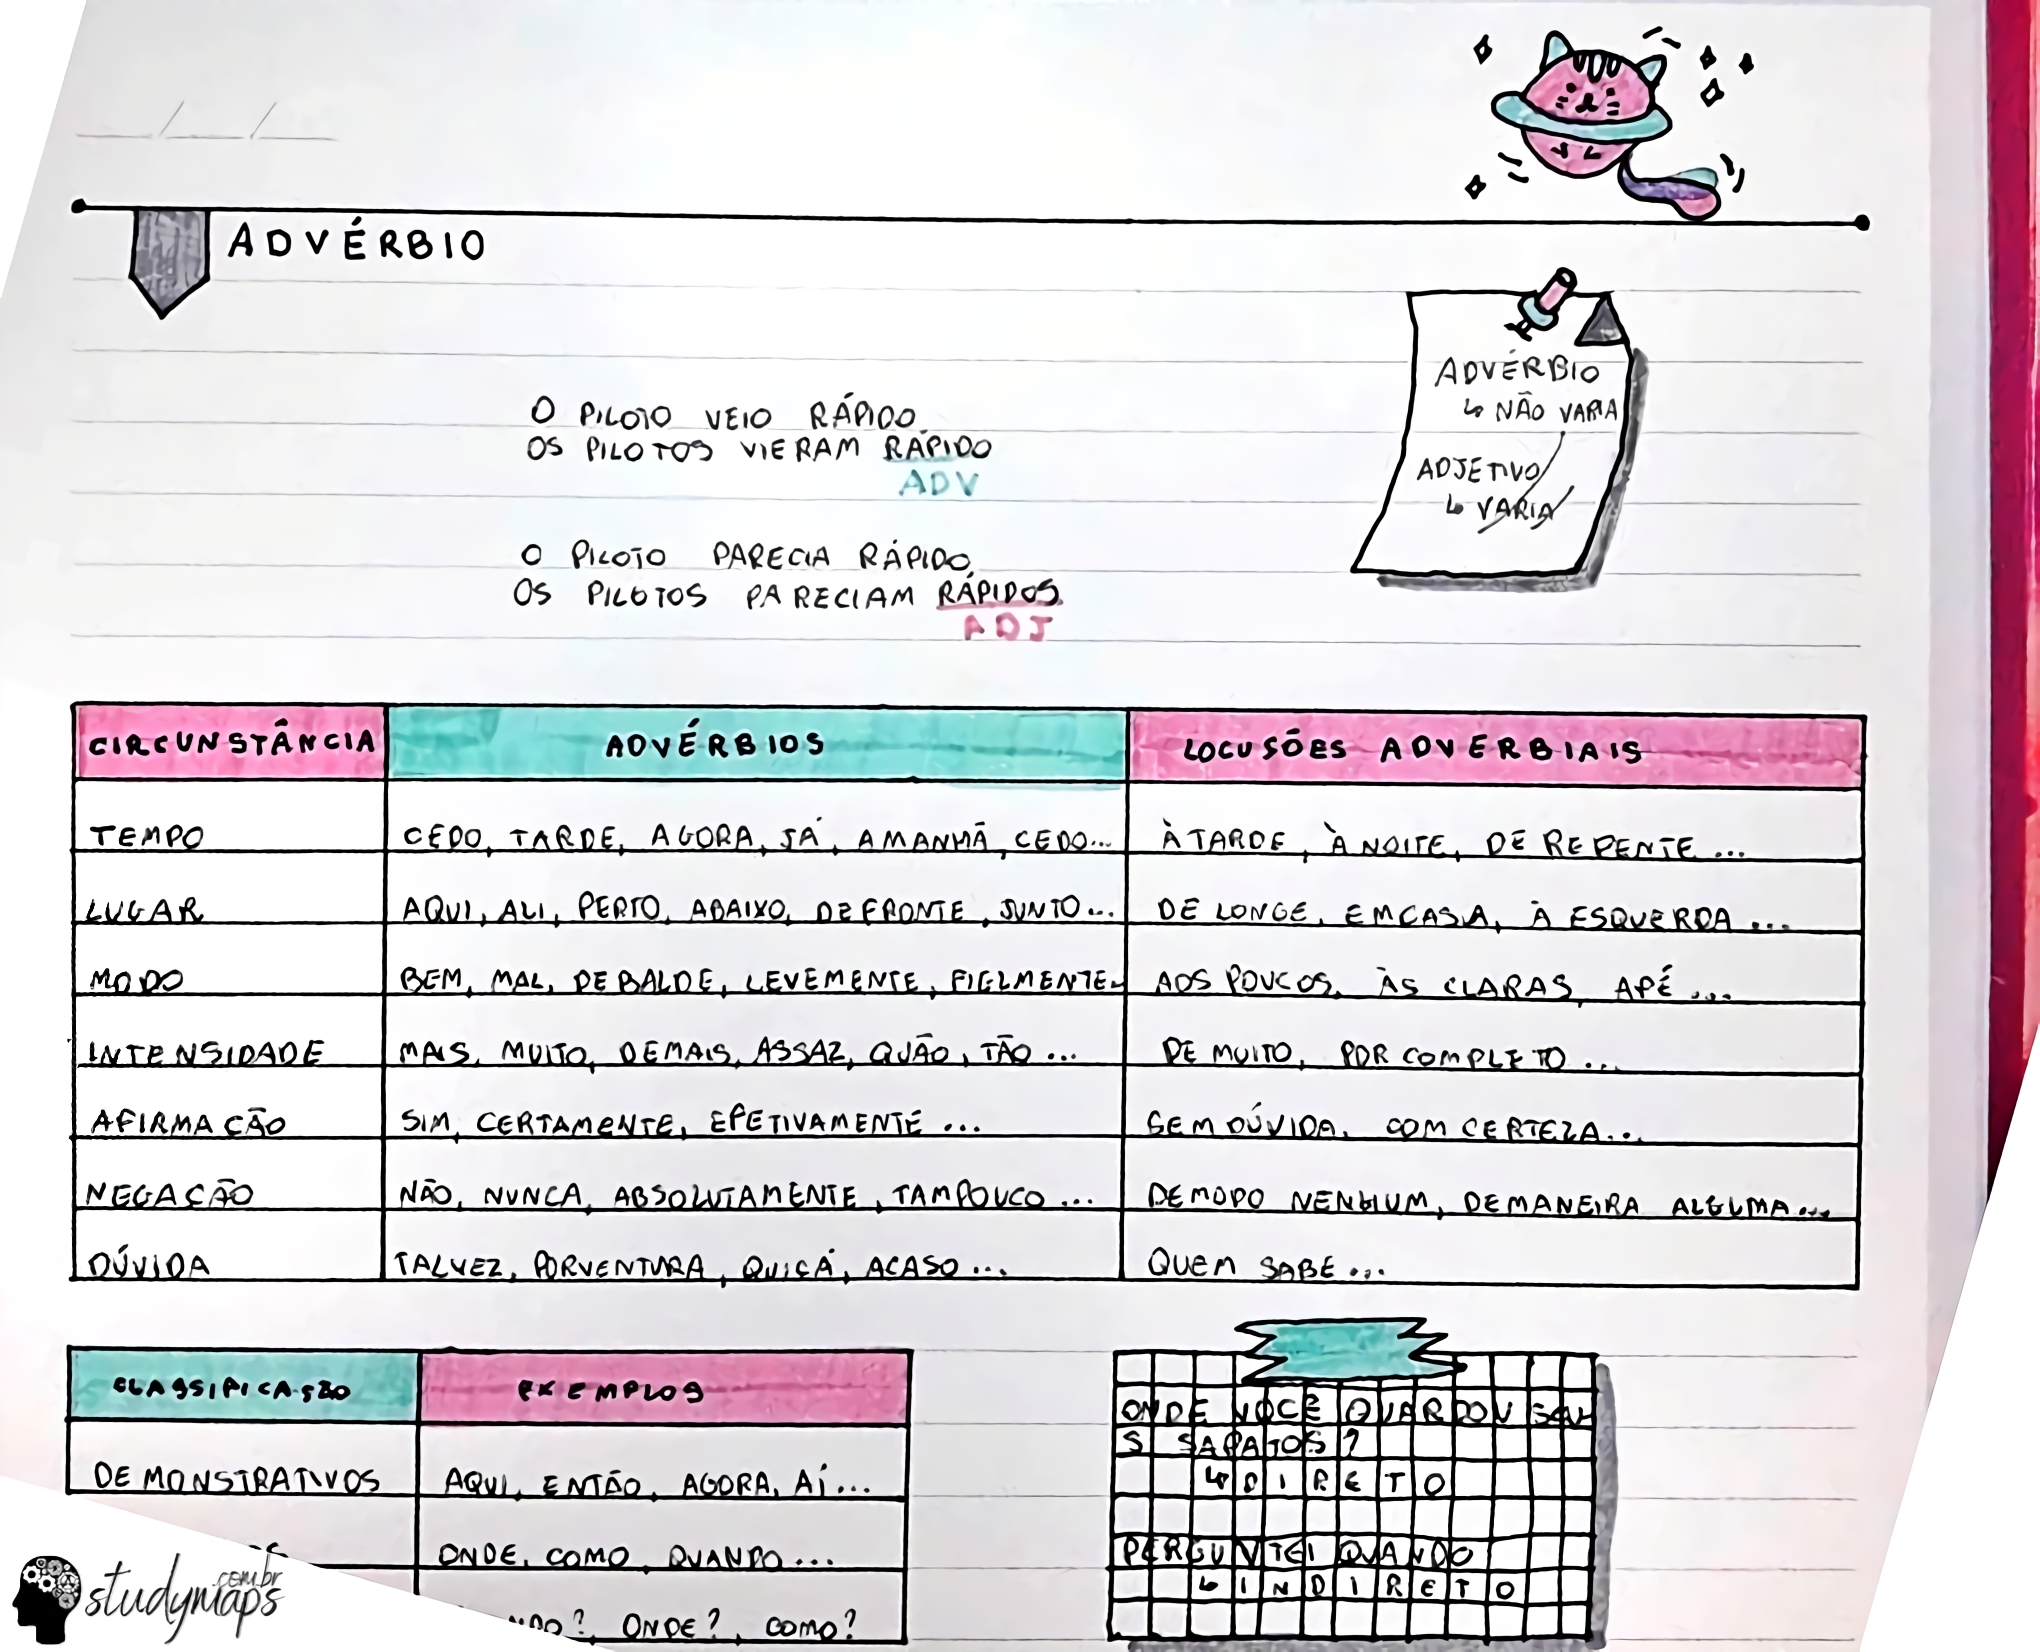 ADVÉRBIO
O PILOTO VEIO RÁPIDO
OS PILOTOS VIERAM RÁPIDO
ADV
O PILOTO PARECIA RÁPIDO
OS PILOTOS PARECIAM RÁPIDOS
ADJ
ADVÉRBIO
↳ NÃO VARIA
ADJETIVO
↳ VARIA
CIRCUNSTÂNCIA ADVÉRBIOS LOCUSÕES ADVERBIAIS
TEMPO CEDO, TARDE, AGORA, JÁ, AMANHÃ, CEDO... À TARDE, À NOITE, DE REPENTE ...
LUGAR AQUI, ALI, PERTO, ABAIXO, DEFRONTE, JUNTO... DE LONGE, EM CASA, À ESQUERDA ...
MODO BEM, MAL, DEBALDE, LEVEMENTE, FIELMENTE.. AOS POUCOS, ÀS CLARAS, A PÉ ...
INTENSIDADE MAIS, MUITO, DEMAIS, ASSAZ, QUÃO, TÃO ... DE MUITO, POR COMPLETO ...
AFIRMAÇÃO SIM, CERTAMENTE, EFETIVAMENTE ... SEM DÚVIDA, COM CERTEZA...
NEGAÇÃO NÃO, NUNCA, ABSOLUTAMENTE, TAMPOUCO ... DE MODO NENHUM, DE MANEIRA ALGUMA...
DÚVIDA TALVEZ, PORVENTURA, QUIÇÁ, ACASO ... QUEM SABE ...
CLASSIFICAÇÃO EXEMPLOS
DEMONSTRATIVOS AQUI, ENTÃO, AGORA, AÍ...
ONDE, COMO, QUANDO ...
ONDE?, COMO?
ONDE VOCÊ GUARDOU SEU
S SAPATOS?
↳ DIRETO
PERGUNTEI QUANDO
↳ INDIRETO
studymaps
.com.br